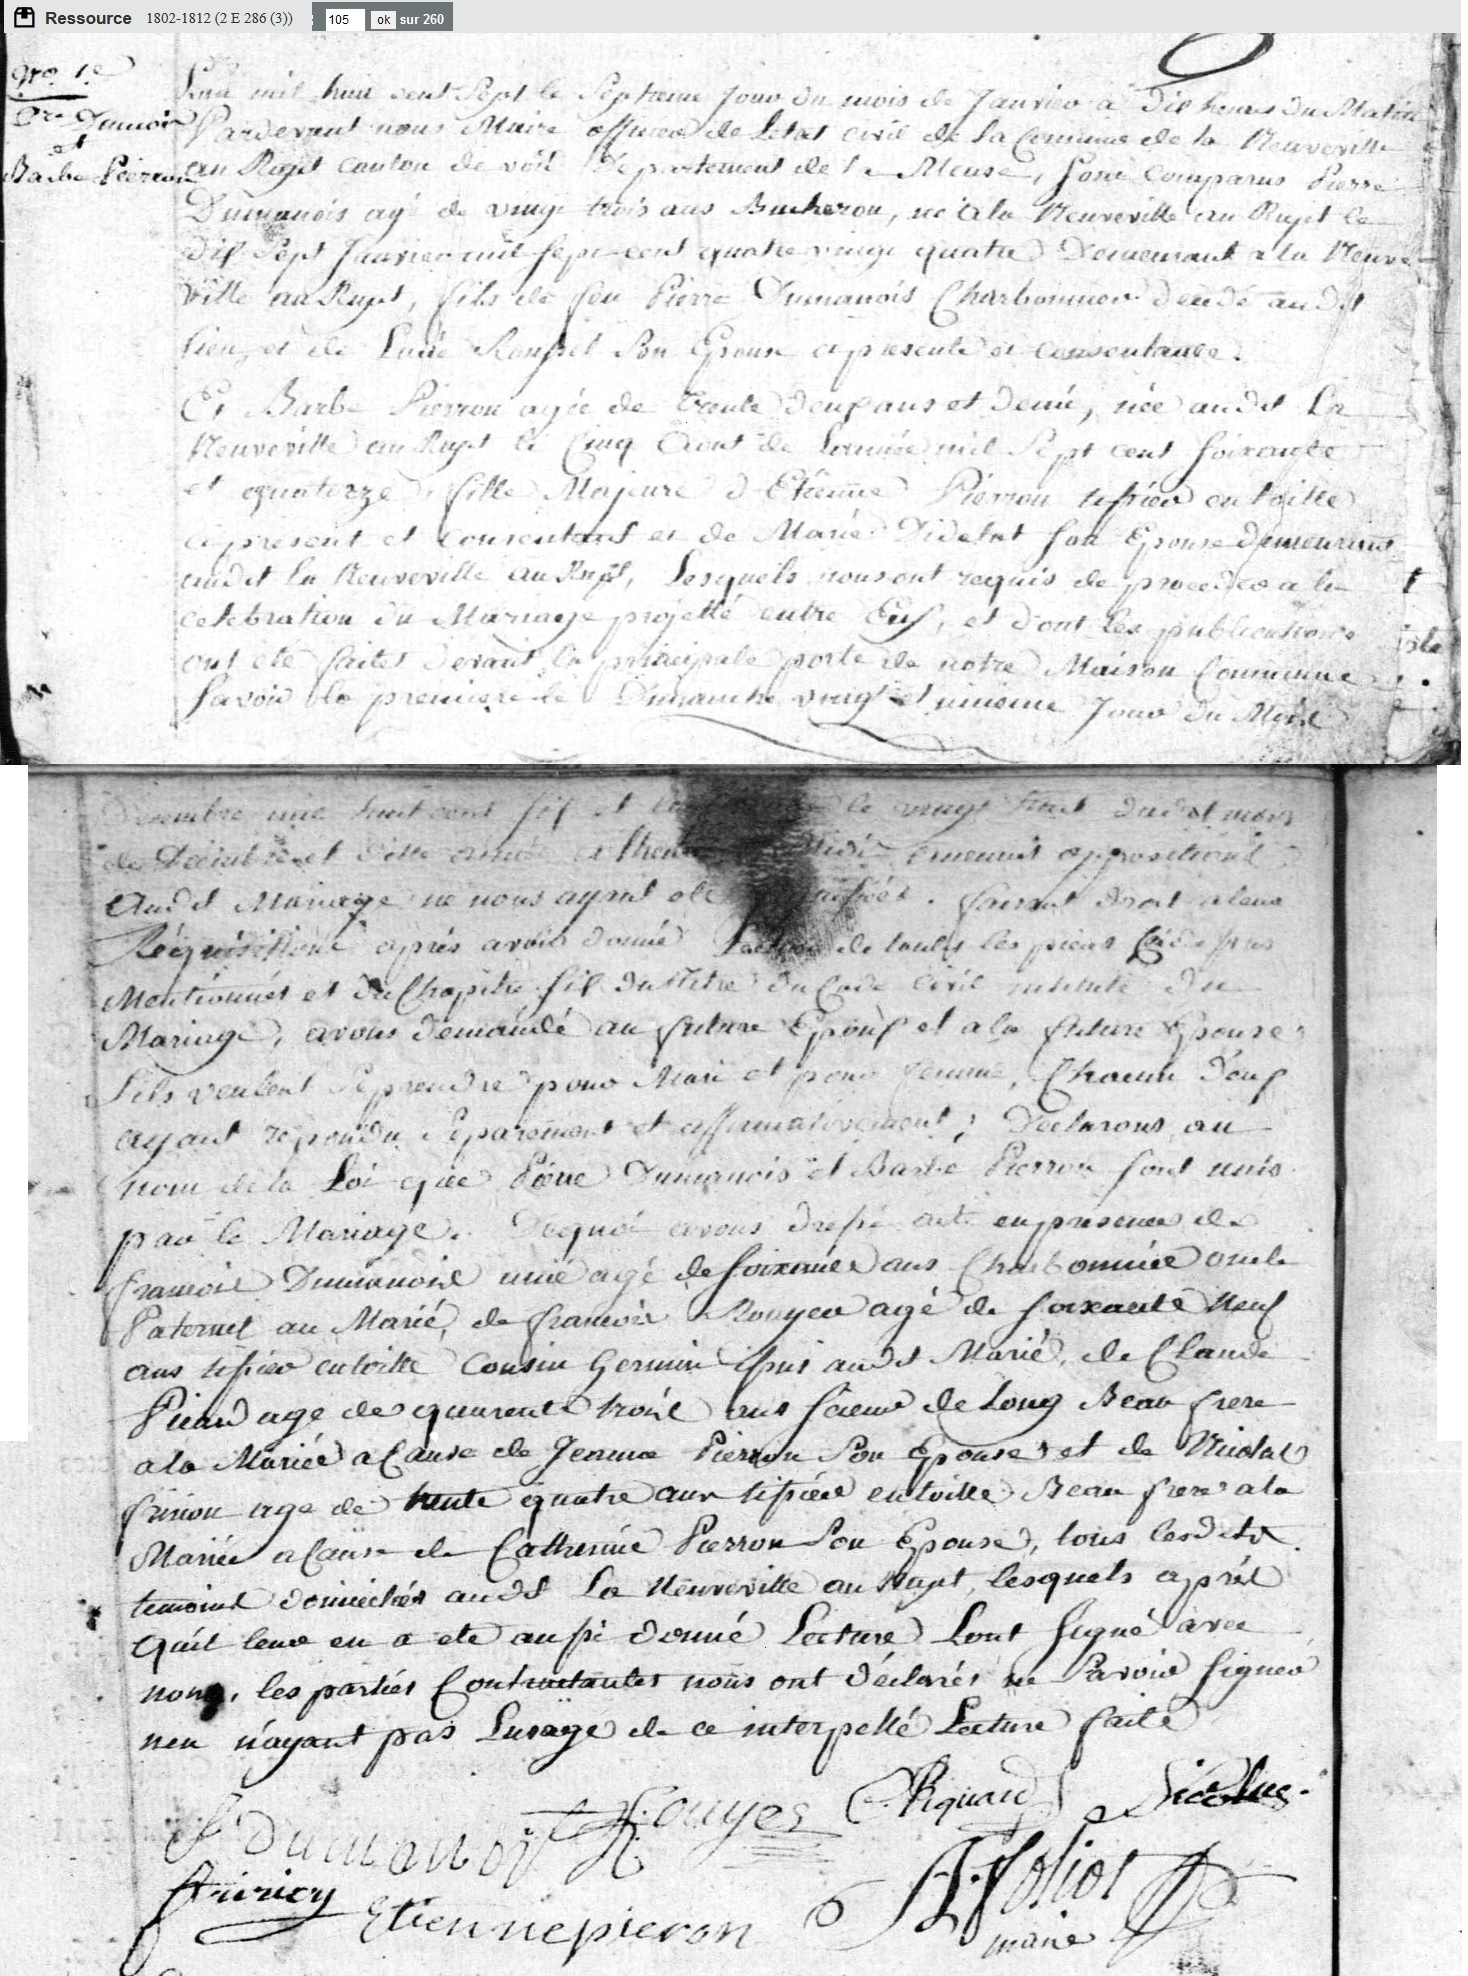 Ressource 1802-1812 (2 E 286 (3)) 105 ok sur 260
No. 1.e
Pre Dumanois
et
Barbe Pierron
L'an mil huit cent Sept le Septieme Jour du mois de Janvier a Dix heures du Matin
Pardevant nous Maire officier de Letat civil de la Commune de la Neuveville
au Rupt canton de void Departement de la Meuse, sont comparus Pierre
Dumanois agé de vingt trois ans Bucheron, né a la Neuveville au Rupt le
dix Sept Janvier mil sept cent quatre vingt quatre Demeurant a la Neuve-
ville au Rupt, fils de feu Pierre Dumanois Charbonnier décédé audit
lieu, et de Lucie Roussel Son Epouse a presente et consentante.
Et Barbe Pierron agée de trente deux ans et demie, née audit La
Neuveville au Rupt le Cinq Aout de Lannée mil Sept cent soixante
et quatorze, fille Majeure d'Etienne Pierron tissier en toille
a present et consentant et de Marie Didelot son Epouse demeurants
audit La Neuveville au Rupt, Lesquels nous ont requis de proceder a la
celebration du Mariage projetté entre Eux, et dont les publications
ont eté faites devant la principale porte de notre Maison Commune
Savoir la premiere le Dimanche vingt et unieme Jour du Mois
Decembre mil huit cent six et le vingt huit dudit mois
de Decembre et ditte année a heure Midi, aucunes oppositions
Audit Mariage ne nous ayant eté . faisant droit a leur
Réquisitions après avoir donné Lecture de toutes les pieces Cidessus
Mentionnés et du Chapitre six du Titre du Code Civil intitulé du
Mariage, avons demandé au future Epoux et a la future Epouse,
sils veulent Se prendre pour Mari et pour femme, Chacun d'eux
ayant repondu Separement et affirmativement; Declarons au
nom de la Loi que Pierre Dumanois et Barbe Pierron sont unis
par le Mariage. Dequoi avons dressé acte en presence de
francois Dumanois ainé agé de soixante ans Charbonnier oncle
Paternel au Marié, de francois Rouyer agé de soixante Neuf
ans tissier en toille Cousin Germain audit Marié, de Claude
Picard age de quarente trois ans scieur de Long Beau frere
a la Mariée a Cause de Jeanne Pierron Son Epouse et de Nicolas
fririon age de trente quatre ans tissier en toille Beau frere a la
Mariée a Cause de Catherine Pierron Son Epouse, tous lesdits
temoins domiciliés audit La Neuveville au Rupt, lesquels après
Quil leur en a ete aussi donné Lecture Lont signé avec
nous, les parties Contractantes nous ont déclarés ne Savoir signer
nen n'ayant pas Lusage de ce interpellé Lecture faite
f dumanois f Rouyer C Piquard Nicolas
fririon Etienne pieron A. foliot
maire